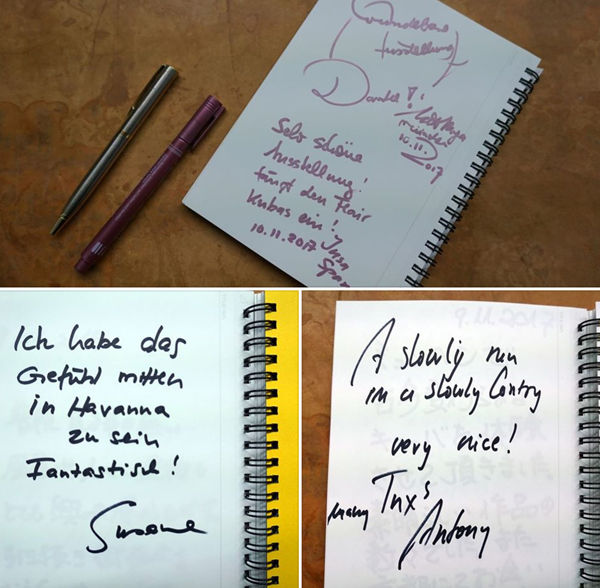 Wunderbare
Ausstellung
Danke!
München
10.11.
2017
Sehr schöne
Ausstellung!
fängt den Flair
Kubas ein!
10.11.2017
Ich habe das
Gefühl mitten
in Havanna
zu sein
Fantastisch!
Simone
A slowly run
in a slowly Contry
very nice!
many Tnx's
Antony